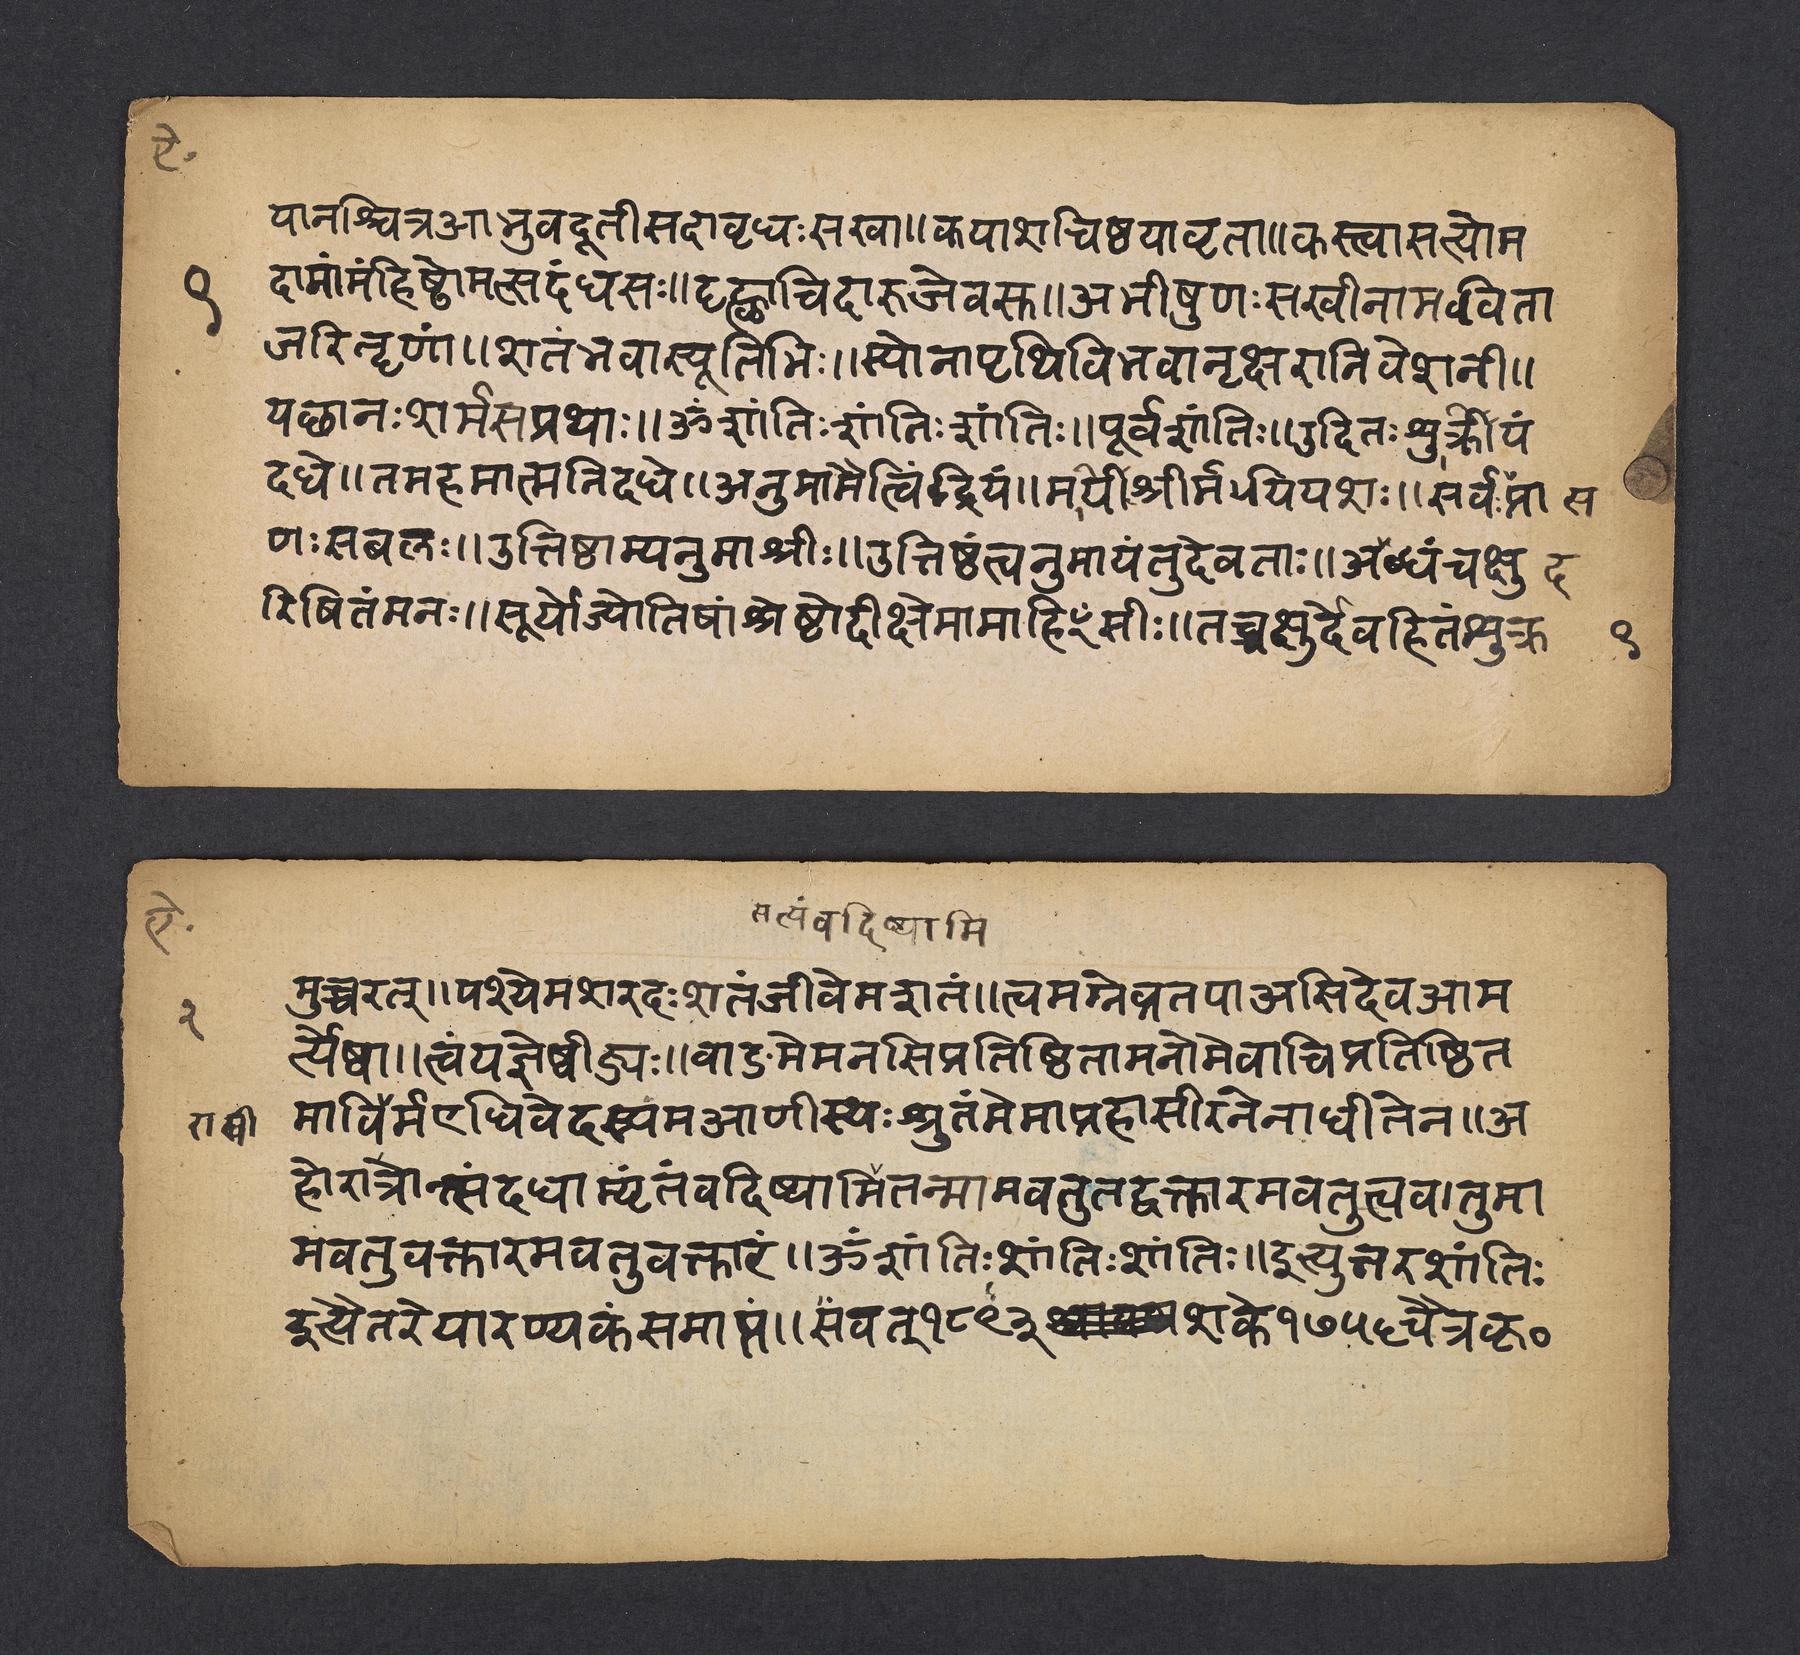 ऐ.
यानश्चित्रआभुवदूतीसदावृधःसखा॥कयाशचिष्ठयावृता॥कस्त्वासत्योम
१
दामांमंहिष्ठोमत्सदंधसः॥दृह्ळाचिदारुजेवसु॥अभीषुणःसखीनामविता
जरितॄणां॥शतंभवास्यूतिभिः॥स्योनापृथिविभवानृक्षरानिवेशनी॥
यछानःशर्मसप्रथाः॥ॐशांतिःशांतिःशांतिः॥पूर्वशांतिः॥उदितःशुक्रियं
दधे॥तमहमात्मनिदधे॥अनुमामैत्विंद्रियं॥मयिश्रीर्मयियशः॥सर्वःप्रा स
णःसबलः॥उत्तिष्ठाम्यनुमाश्रीः॥उत्तिष्ठंत्वनुमायंतुदेवताः॥अदब्धंचक्षु द
रिषितंमनः॥सूर्योज्योतिषांश्रेष्ठोदीक्षेमामाहिꣳसीः॥तच्चक्षुर्देवहितंशुक्र
१
ऐ.
सत्यंवदिष्यामि
मुच्चरत्॥पश्येमशरदःशतंजीवेमशतं॥त्वमग्नेव्रतपाअसिदेवआम
२
र्त्येष्वा॥त्वंयज्ञेष्वीड्यः॥वाङमेमनसिप्रतिष्ठितामनोमेवाचिप्रतिष्ठित
माविर्मएधिवेदस्यमआणीस्थःश्रुतंमेमाप्रहासीरनेनाधीतेन॥अ
होरात्रान्त्संदधाम्यृतंवदिष्यामितन्मामवतुतद्वक्तारमवतुत्ववातुमा
मवतुवक्तारमवतुवक्तारं॥ॐशांतिःशांतिःशांतिः॥इत्युत्तरशांतिः
इत्यैतरेयारण्यकंसमाप्तं॥संवत्१८९३ शके१७५८चैत्रकृ०